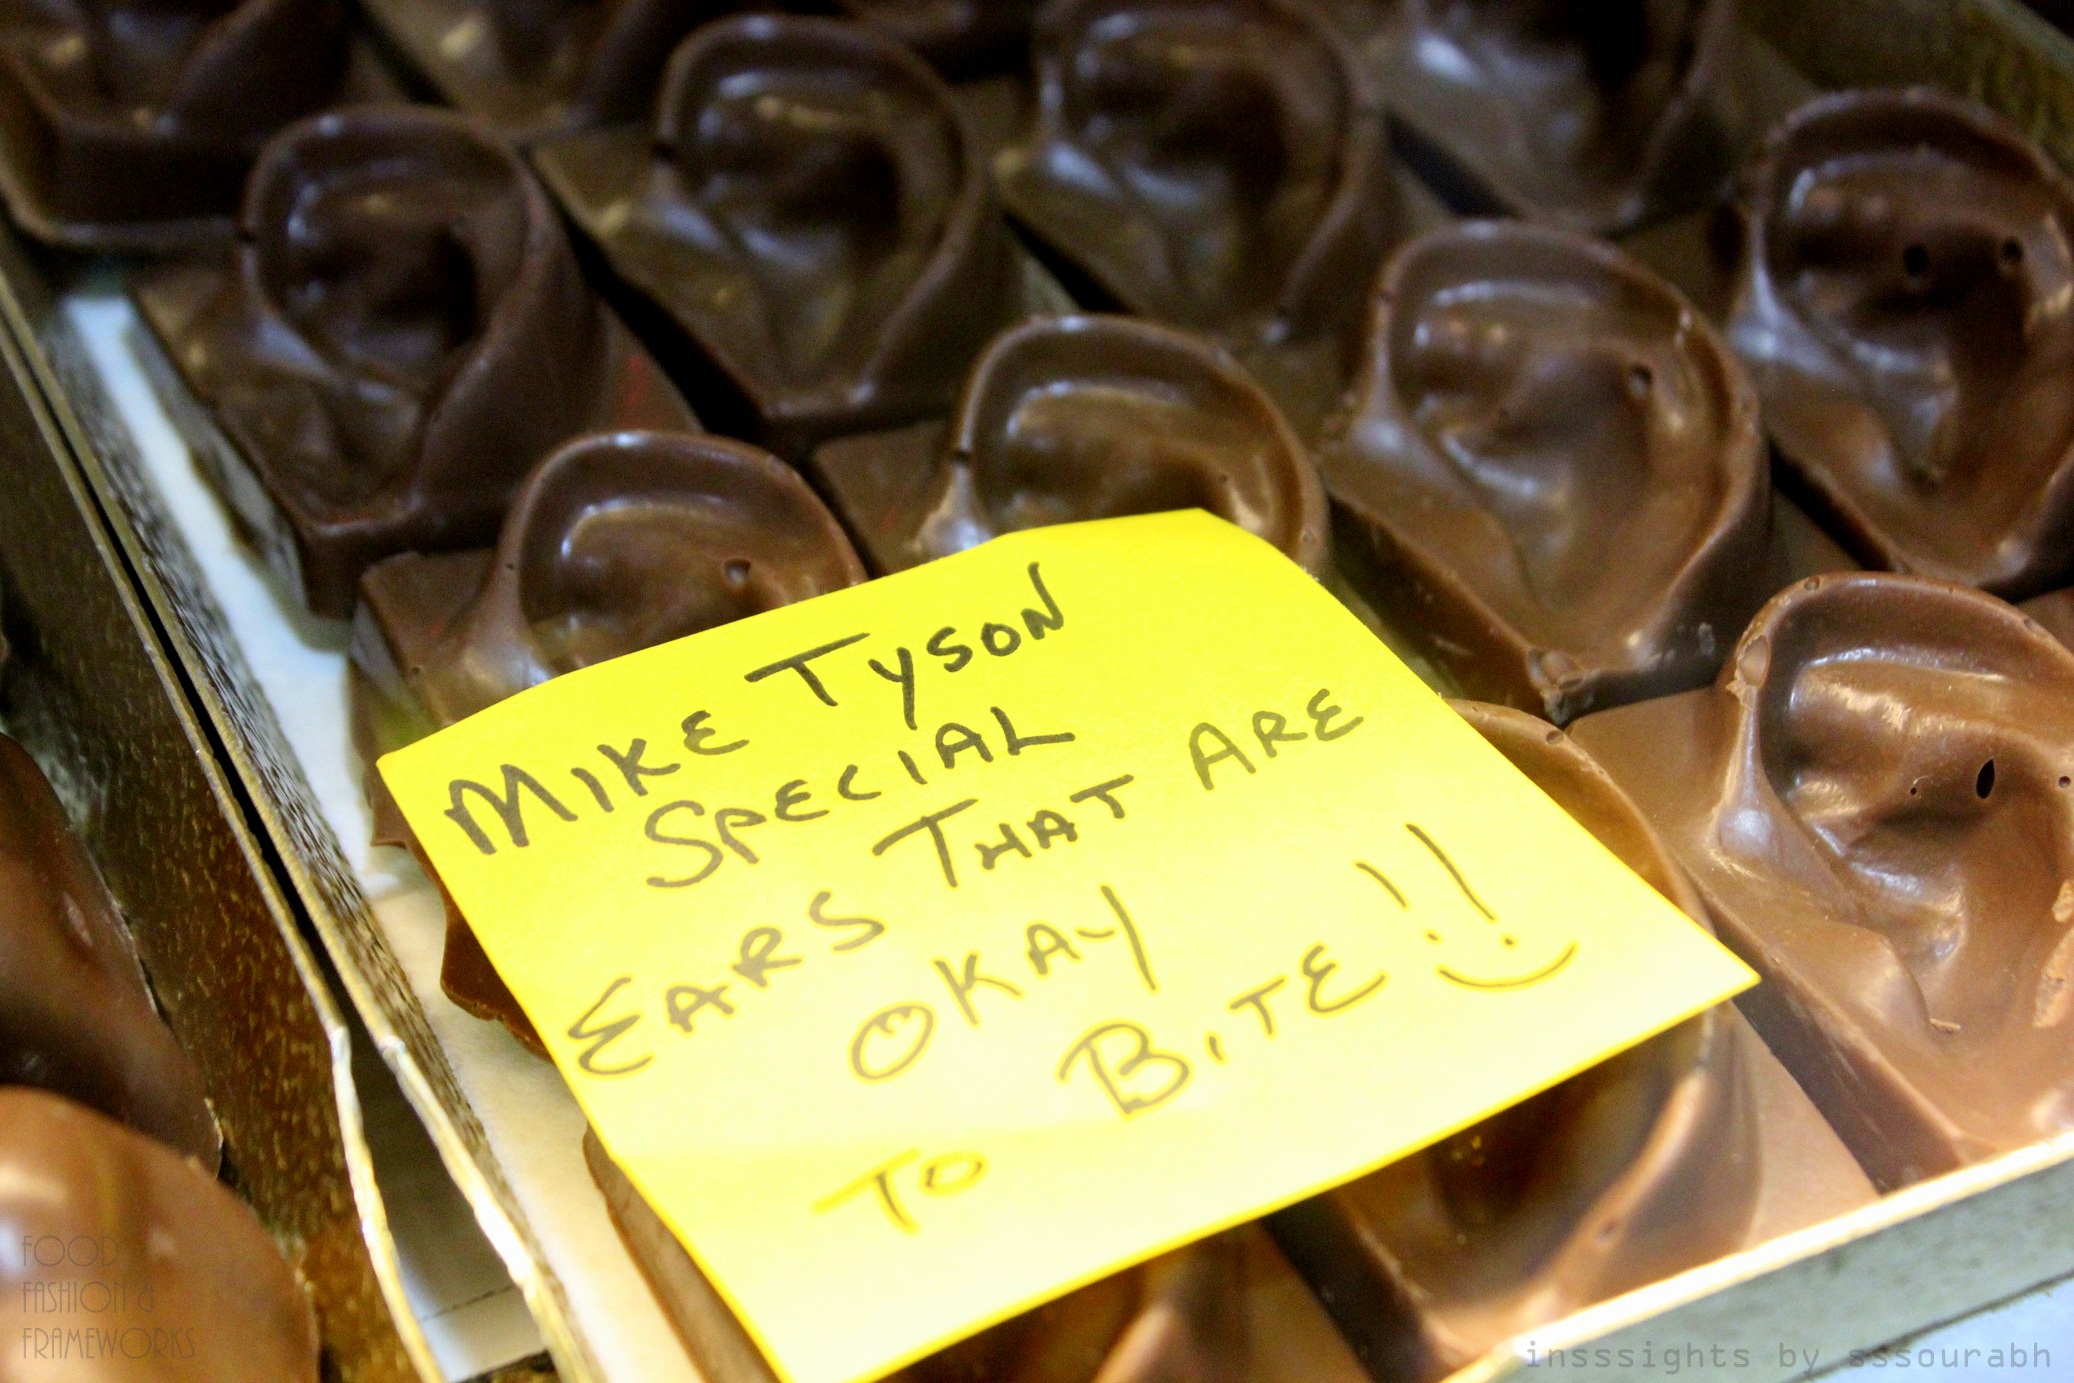 MIKE TYSON
SPECIAL
EARS THAT ARE
OKAY
TO BITE!!
FOOD
FASHION &
FRAMEWORKS
insssights by sssourabh